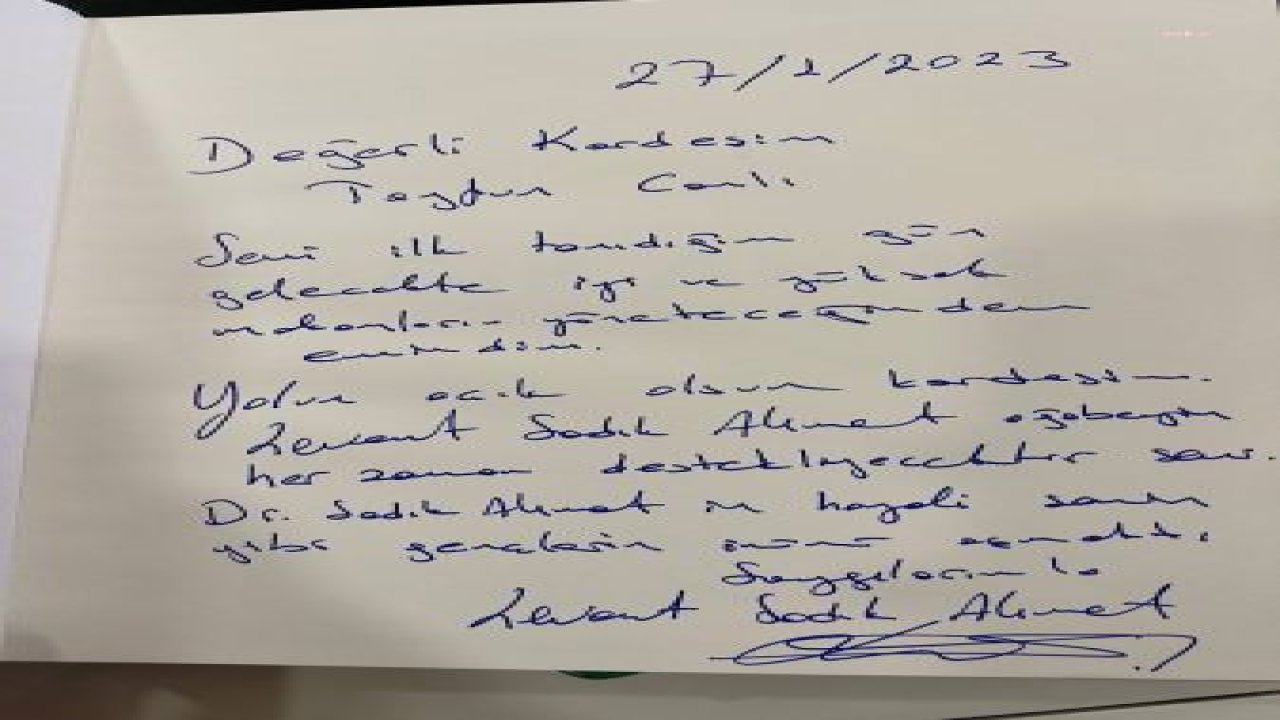 27/1/2023
Değerli Kardeşim
Toydun Canlı
Seni ilk tanıdığım gün
gelecekte iyi ve yüksek
makamların yöneteceğinden
emindim.
Yolun açık olsun kardeşim.
Levent Sadık Ahmet ağabeyin
her zaman destekleyecektir seni.
Dr. Sadık Ahmet in hayali senin
gibi gençlerin önünü açmaktı.
Saygılarımla
Levent Sadık Ahmet